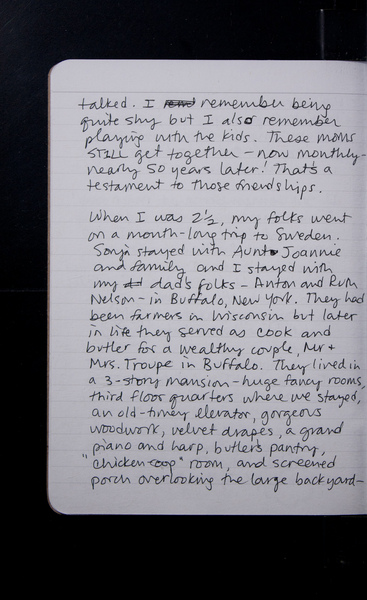 talked. I remember being
quite shy but I also remember
playing with the kids. These moms
STILL get together - now monthly -
nearly 50 years later! That's a
testament to those friendships.
When I was 2 1/2, my folks went
on a month-long trip to Sweden.
Sonja stayed with Aunt Joannie
and family and I stayed with
my dad's folks - Anton and Ruth
Nelson - in Buffalo, New York. They had
been farmers in Wisconsin but later
in life they served as cook and
butler for a wealthy couple, Mr +
Mrs. Troupe in Buffalo. They lived in
a 3-story mansion - huge fancy rooms,
third floor quarters where we stayed,
an old-timey elevator, gorgeous
woodwork, velvet drapes, a grand
piano and harp, butler's pantry,
"chicken coop" room, and screened
porch overlooking the large backyard -